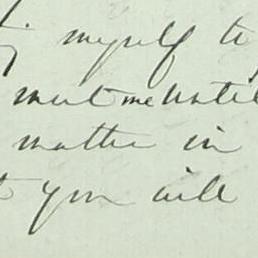 myself to
meet me until
matter in
you will